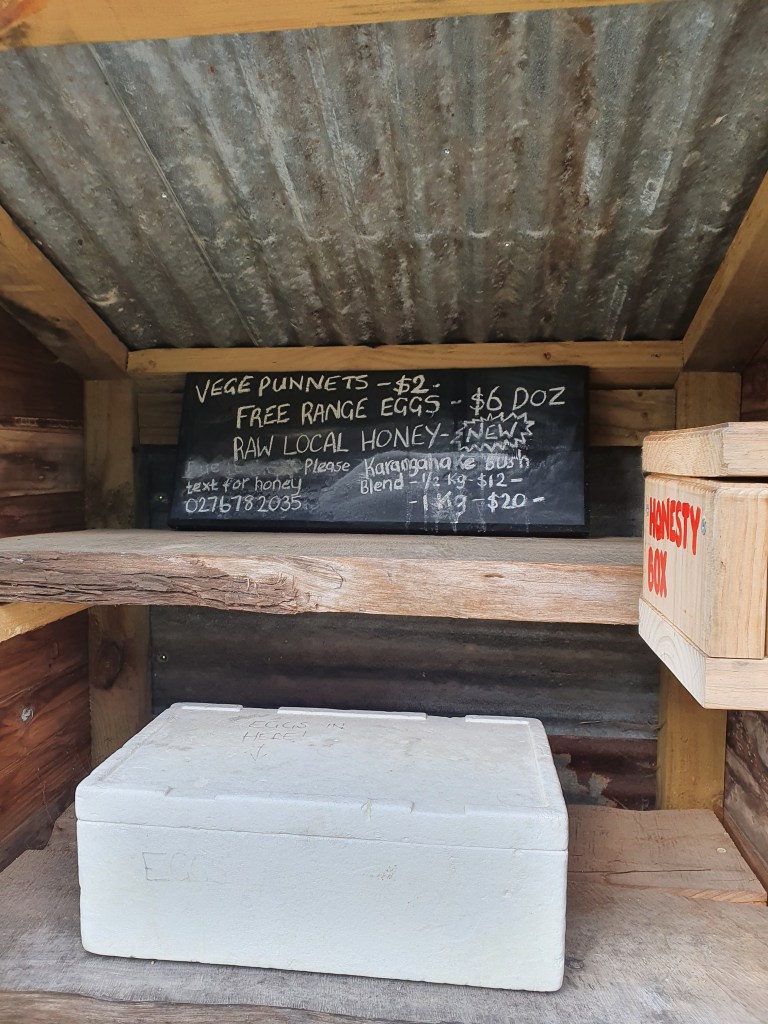 VEGE PUNNETS - $2.
FREE RANGE EGGS - $6 DOZ
RAW LOCAL HONEY - NEW
Please
text for honey
0276782035
Karangahake Bush
Blend - 1/2 Kg - $12 -
- 1 Kg - $20 -
HONESTY
BOX
EGGS IN
HERE!
EGGS